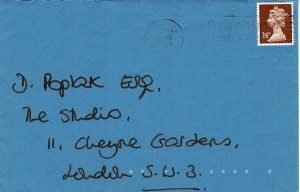 D. Poplak Esq.,
The Studio,
11, Cheyne Gardens,
London S.W.3.